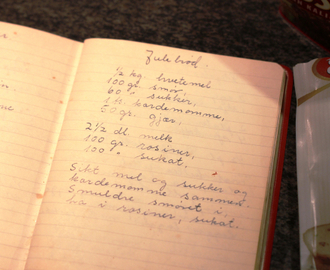 Julebrød.
½ kg. hvetemel
100 gr. smør,
60 " sukker,
1 ts. kardemomme,
50 gr. gjær,
2½ dl. melk
100 gr. rosiner,
100 " sukat.
Sikt mel og sukker og
kardemomme sammen.
Smuldre smøret i,
ha i rosiner, sukat.